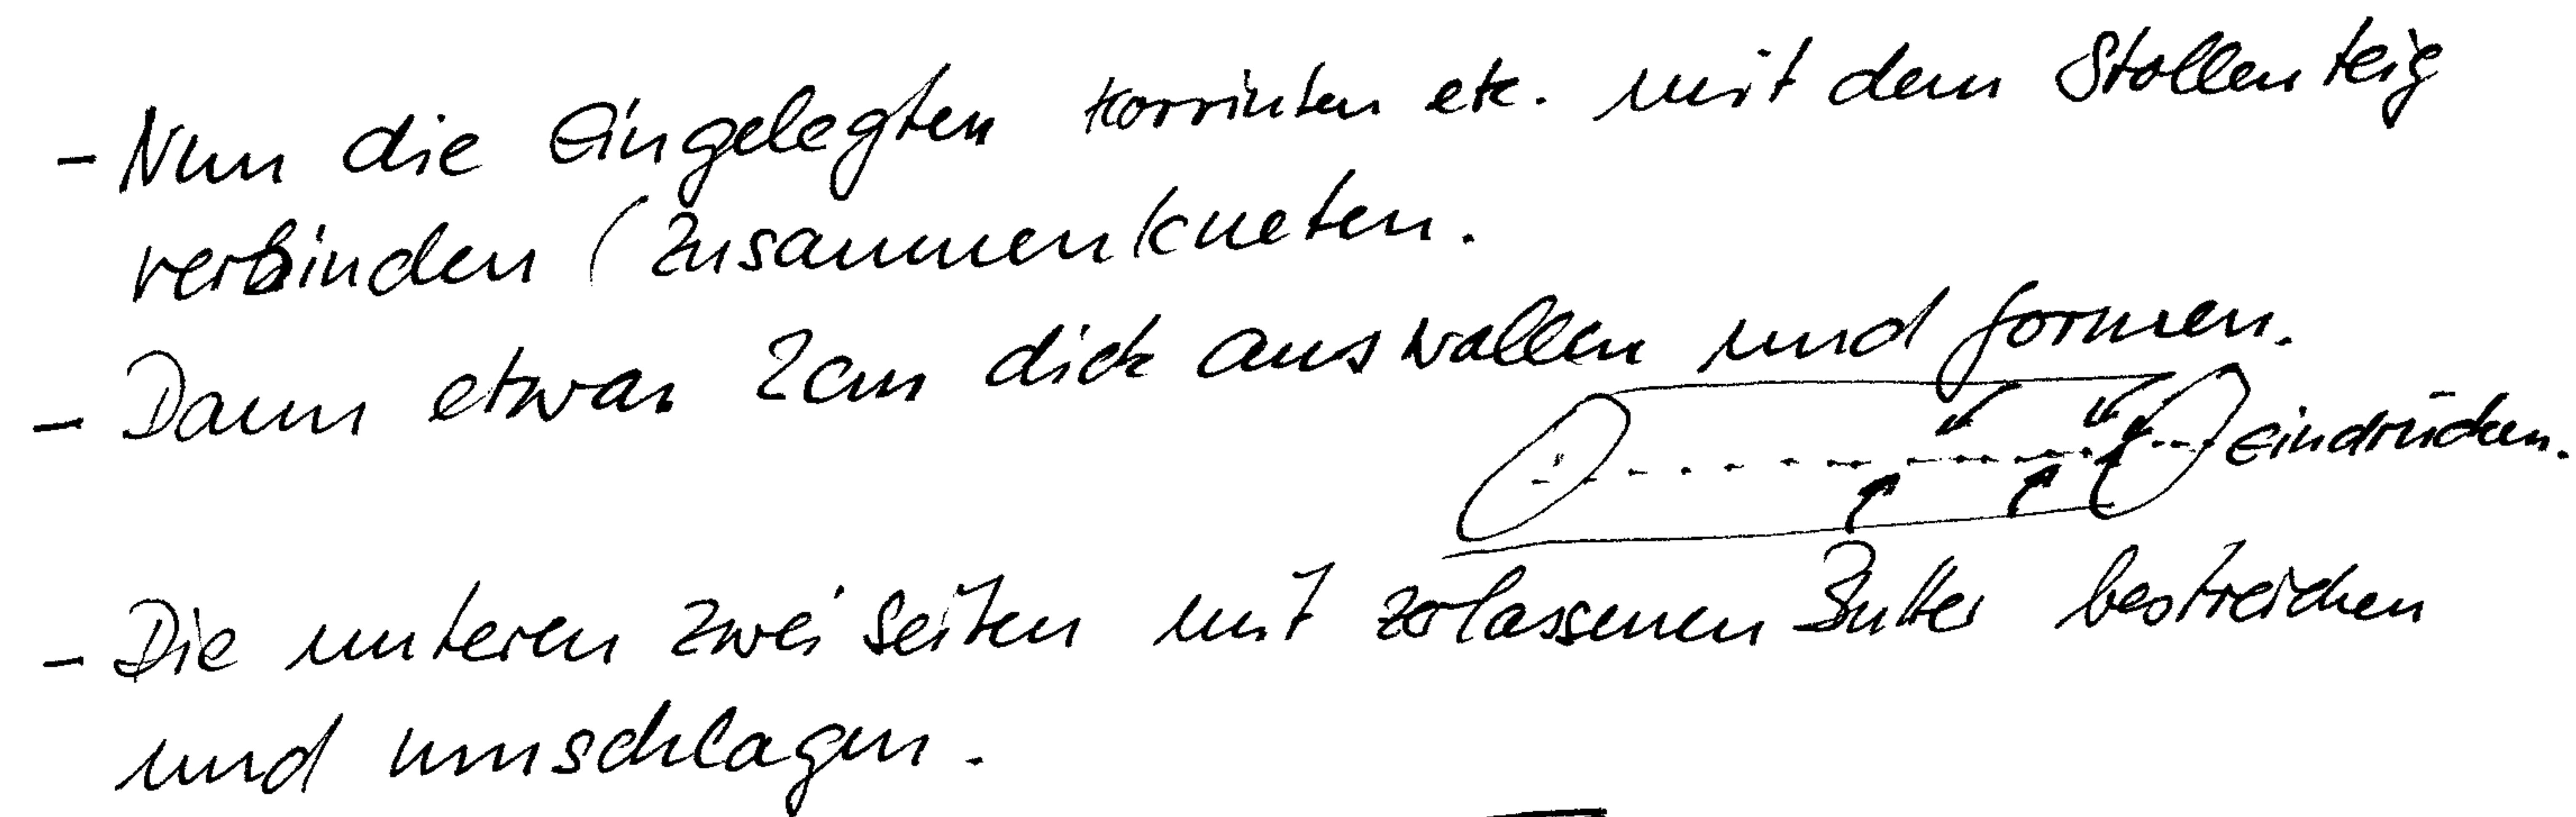 - Nun die Eingelegten Korrinten etc. mit dem Stollenteig
verbinden (Zusammenkneten.
- Dann etwas 2cm dick auswallen und formen.
Eindrücken.
- Die unteren zwei Seiten mit zerlassenen Butter bestreichen
und umschlagen.